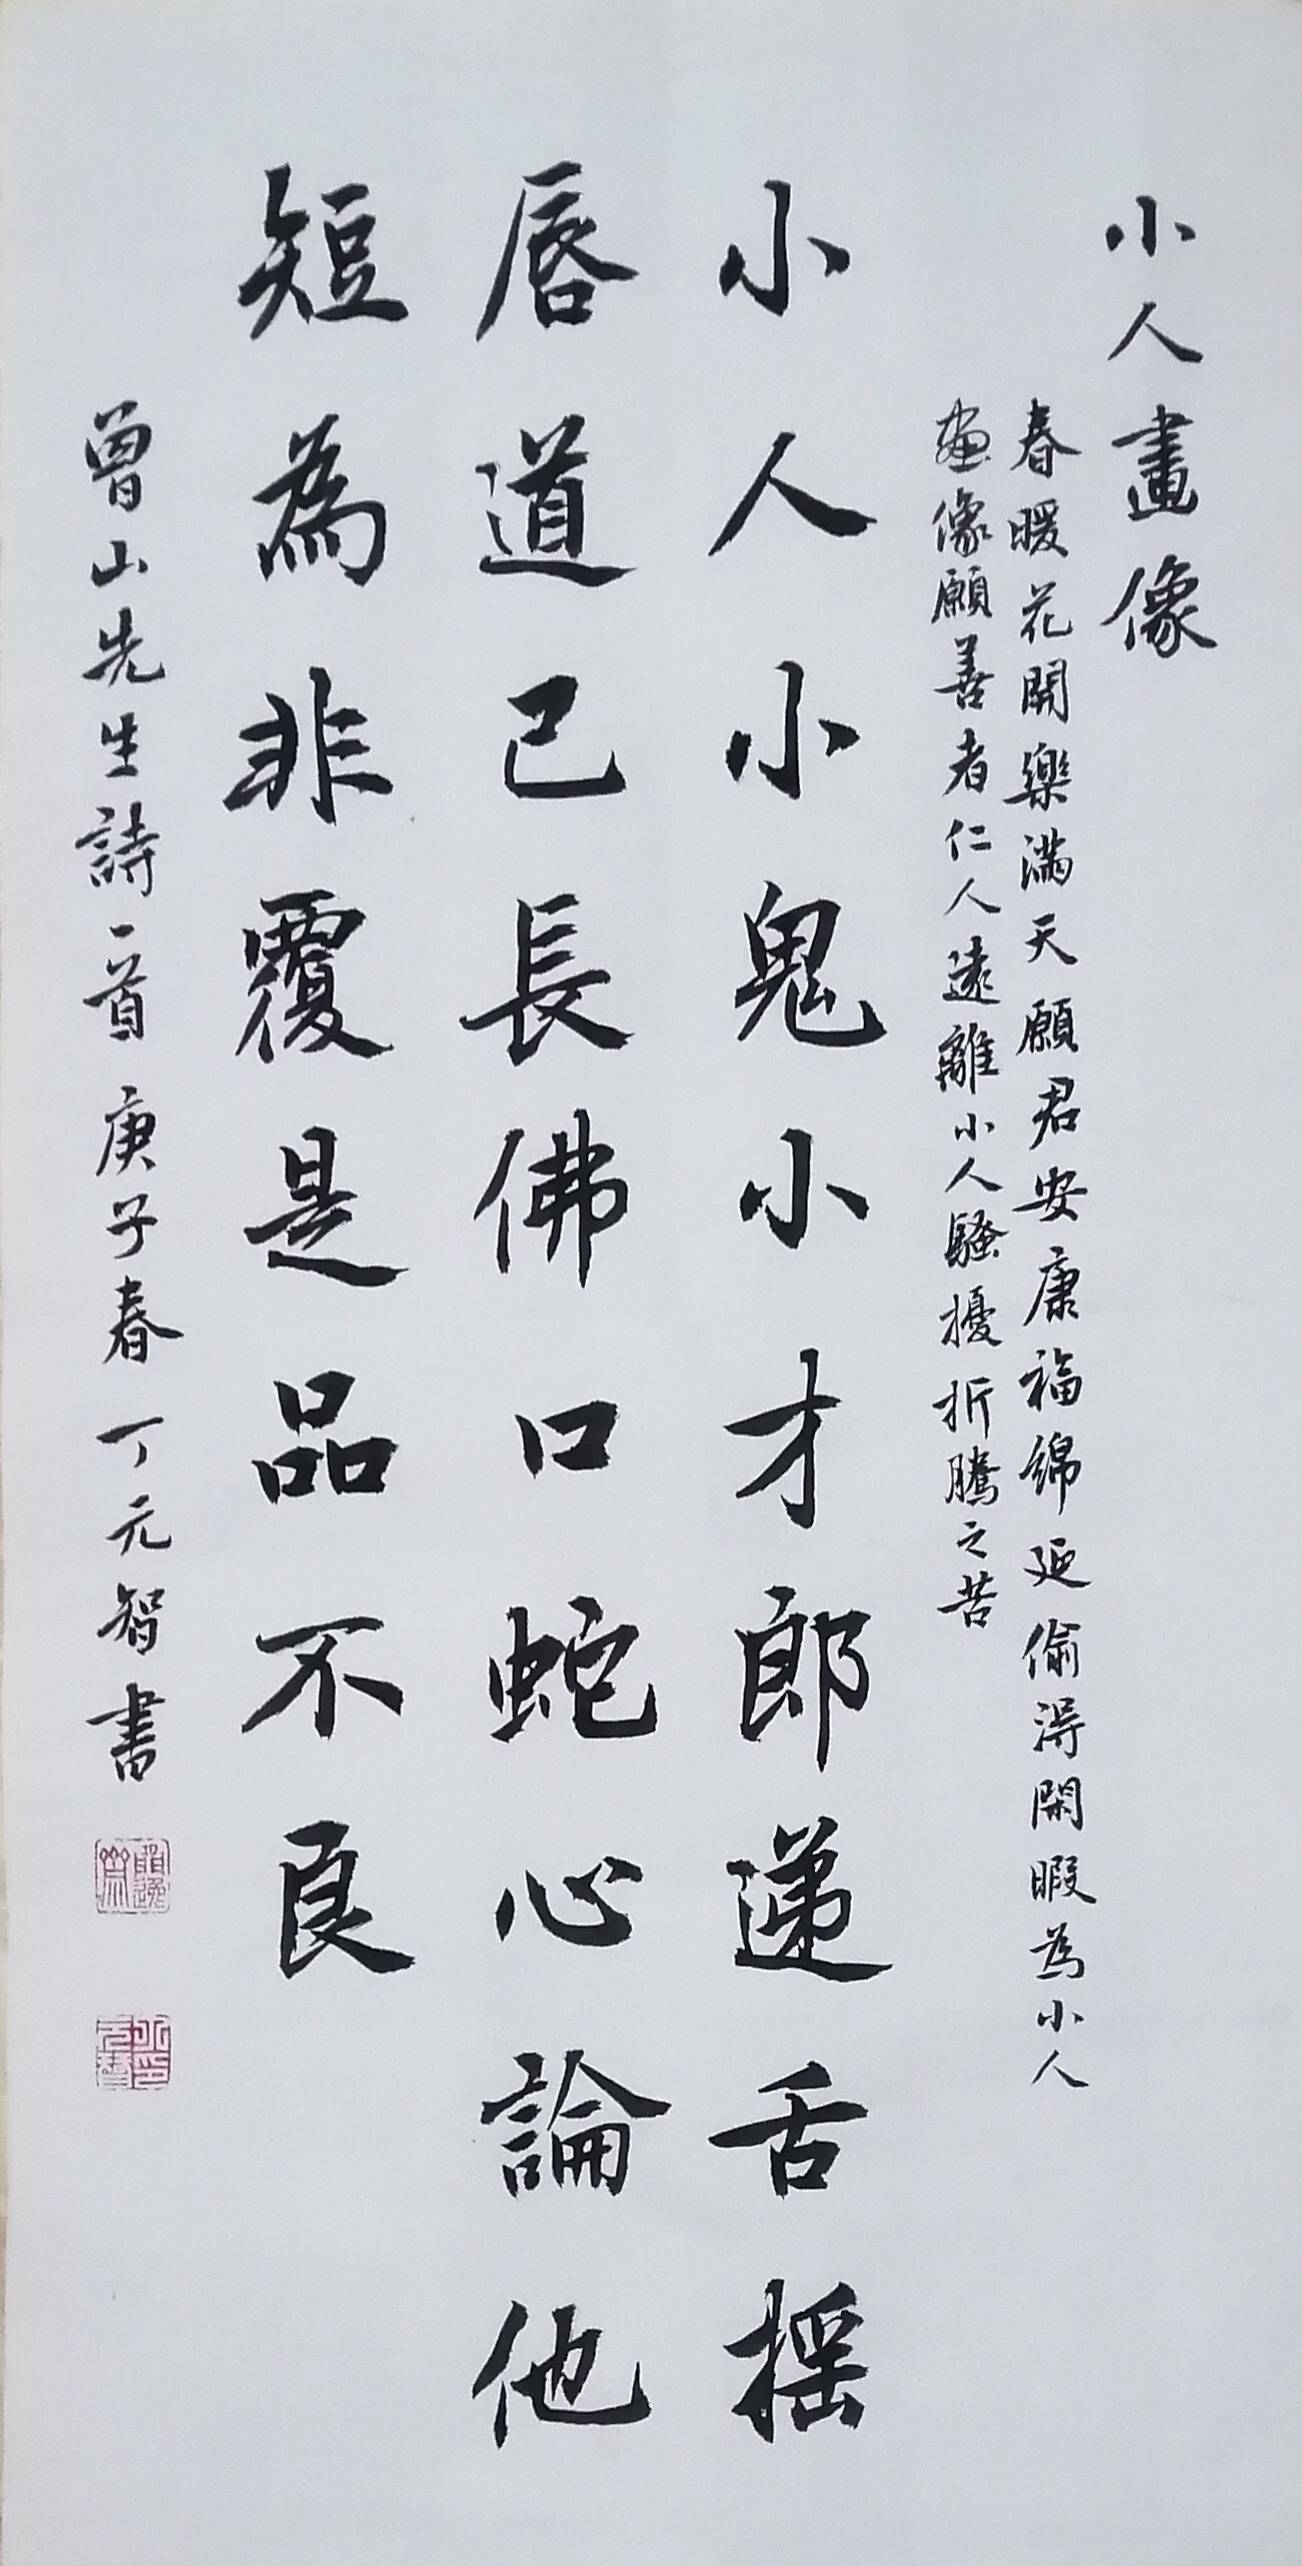 小人畫像
春暖花開樂滿天願君安康福綿延偷得閑暇為小人
畫像願善者仁人遠離小人騷擾折騰之苦
小人小鬼小才郎递舌摇
唇道己長佛口蛇心論他
短為非覆是品不良
曾山先生詩一首庚子春丁元智書